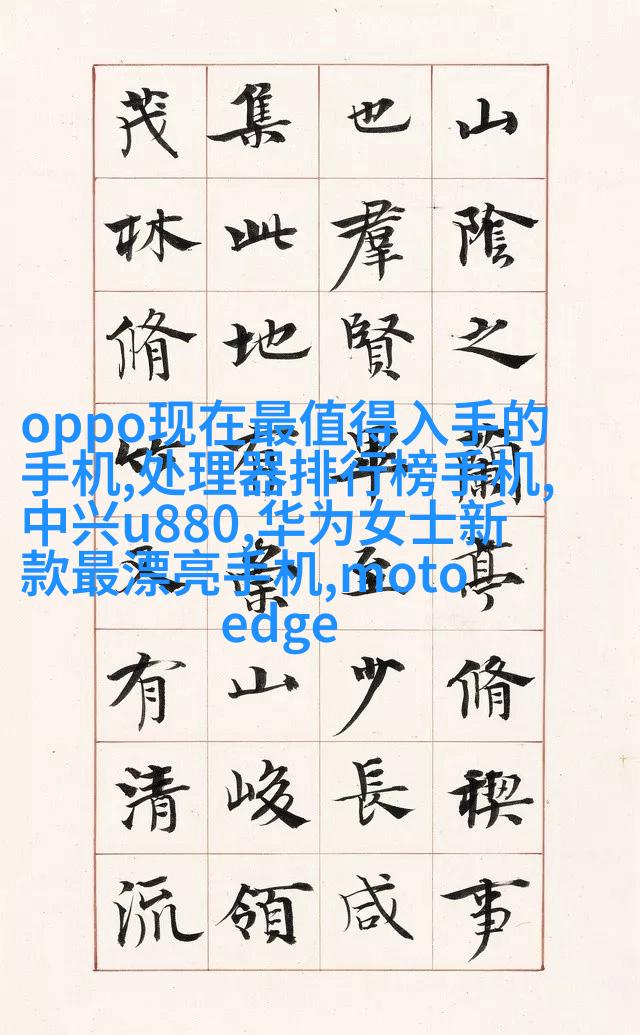 山陰之蘭亭脩稧事
也羣賢畢至少長咸
集此地有崇山峻領
茂林脩竹又有清流
oppo现在最值得入手的
手机,处理器排行榜手机,
中兴u880,华为女士新
款最漂亮手机,moto
edge